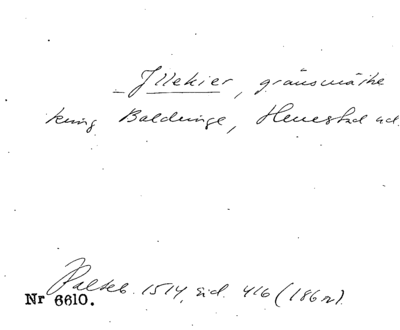 Illekier, gränsmärke
kring Baldringe, Henestad o.d.
Palteb. 1514, sid. 416 (186 n).
Nr 6610.